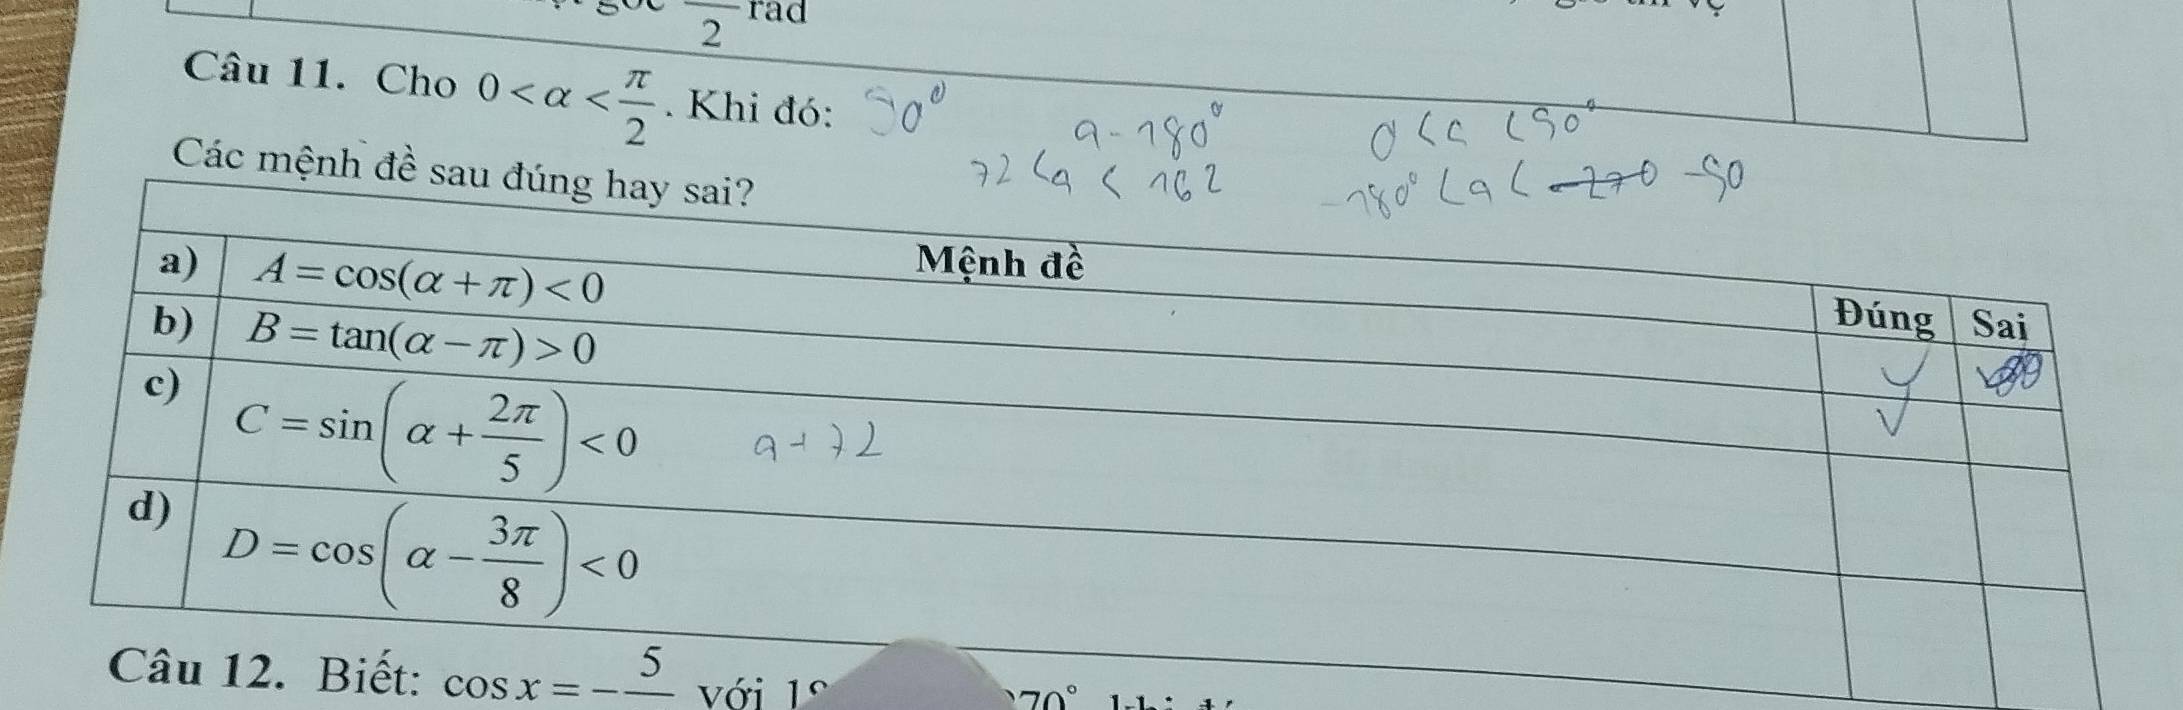 2 rad
Câu 11. Cho 0 < α < π/2. Khi đó: 90⁰
a - 180⁰
0 < a < 90⁰
Các mệnh đề sau đúng hay sai?
72 < a < 162
-180⁰ < a < -90
Mệnh đề Đúng Sai
a) A = cos(α + π) < 0
b) B = tan(α − π) > 0
c) C = sin(α + 2π/5) < 0 a + 72
d) D = cos(α − 3π/8) < 0
Câu 12. Biết: cos x = − 5 với 70°